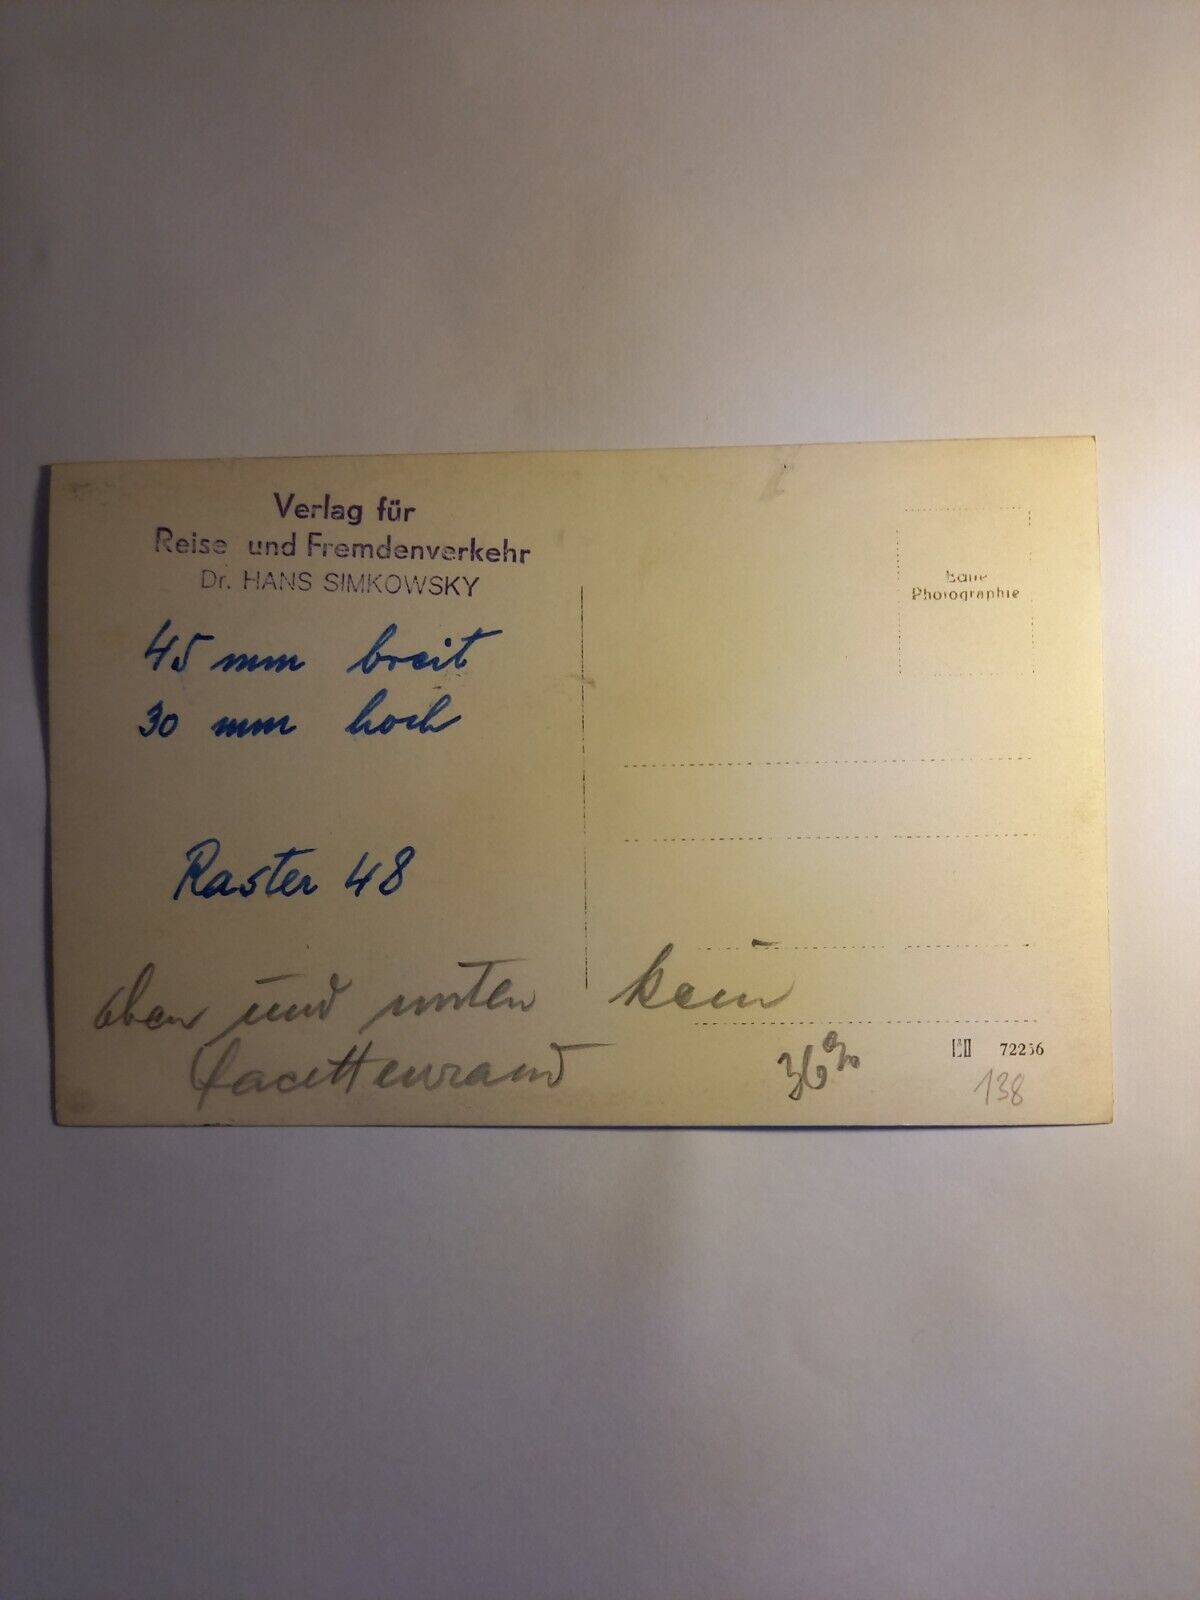 Verlag für
Reise und Fremdenverkehr
Dr. HANS SIMKOWSKY
Photographie
45 mm breit
30 mm hoch
Raster 48
oben und unten kein
Facettenrand
36%
72256
138